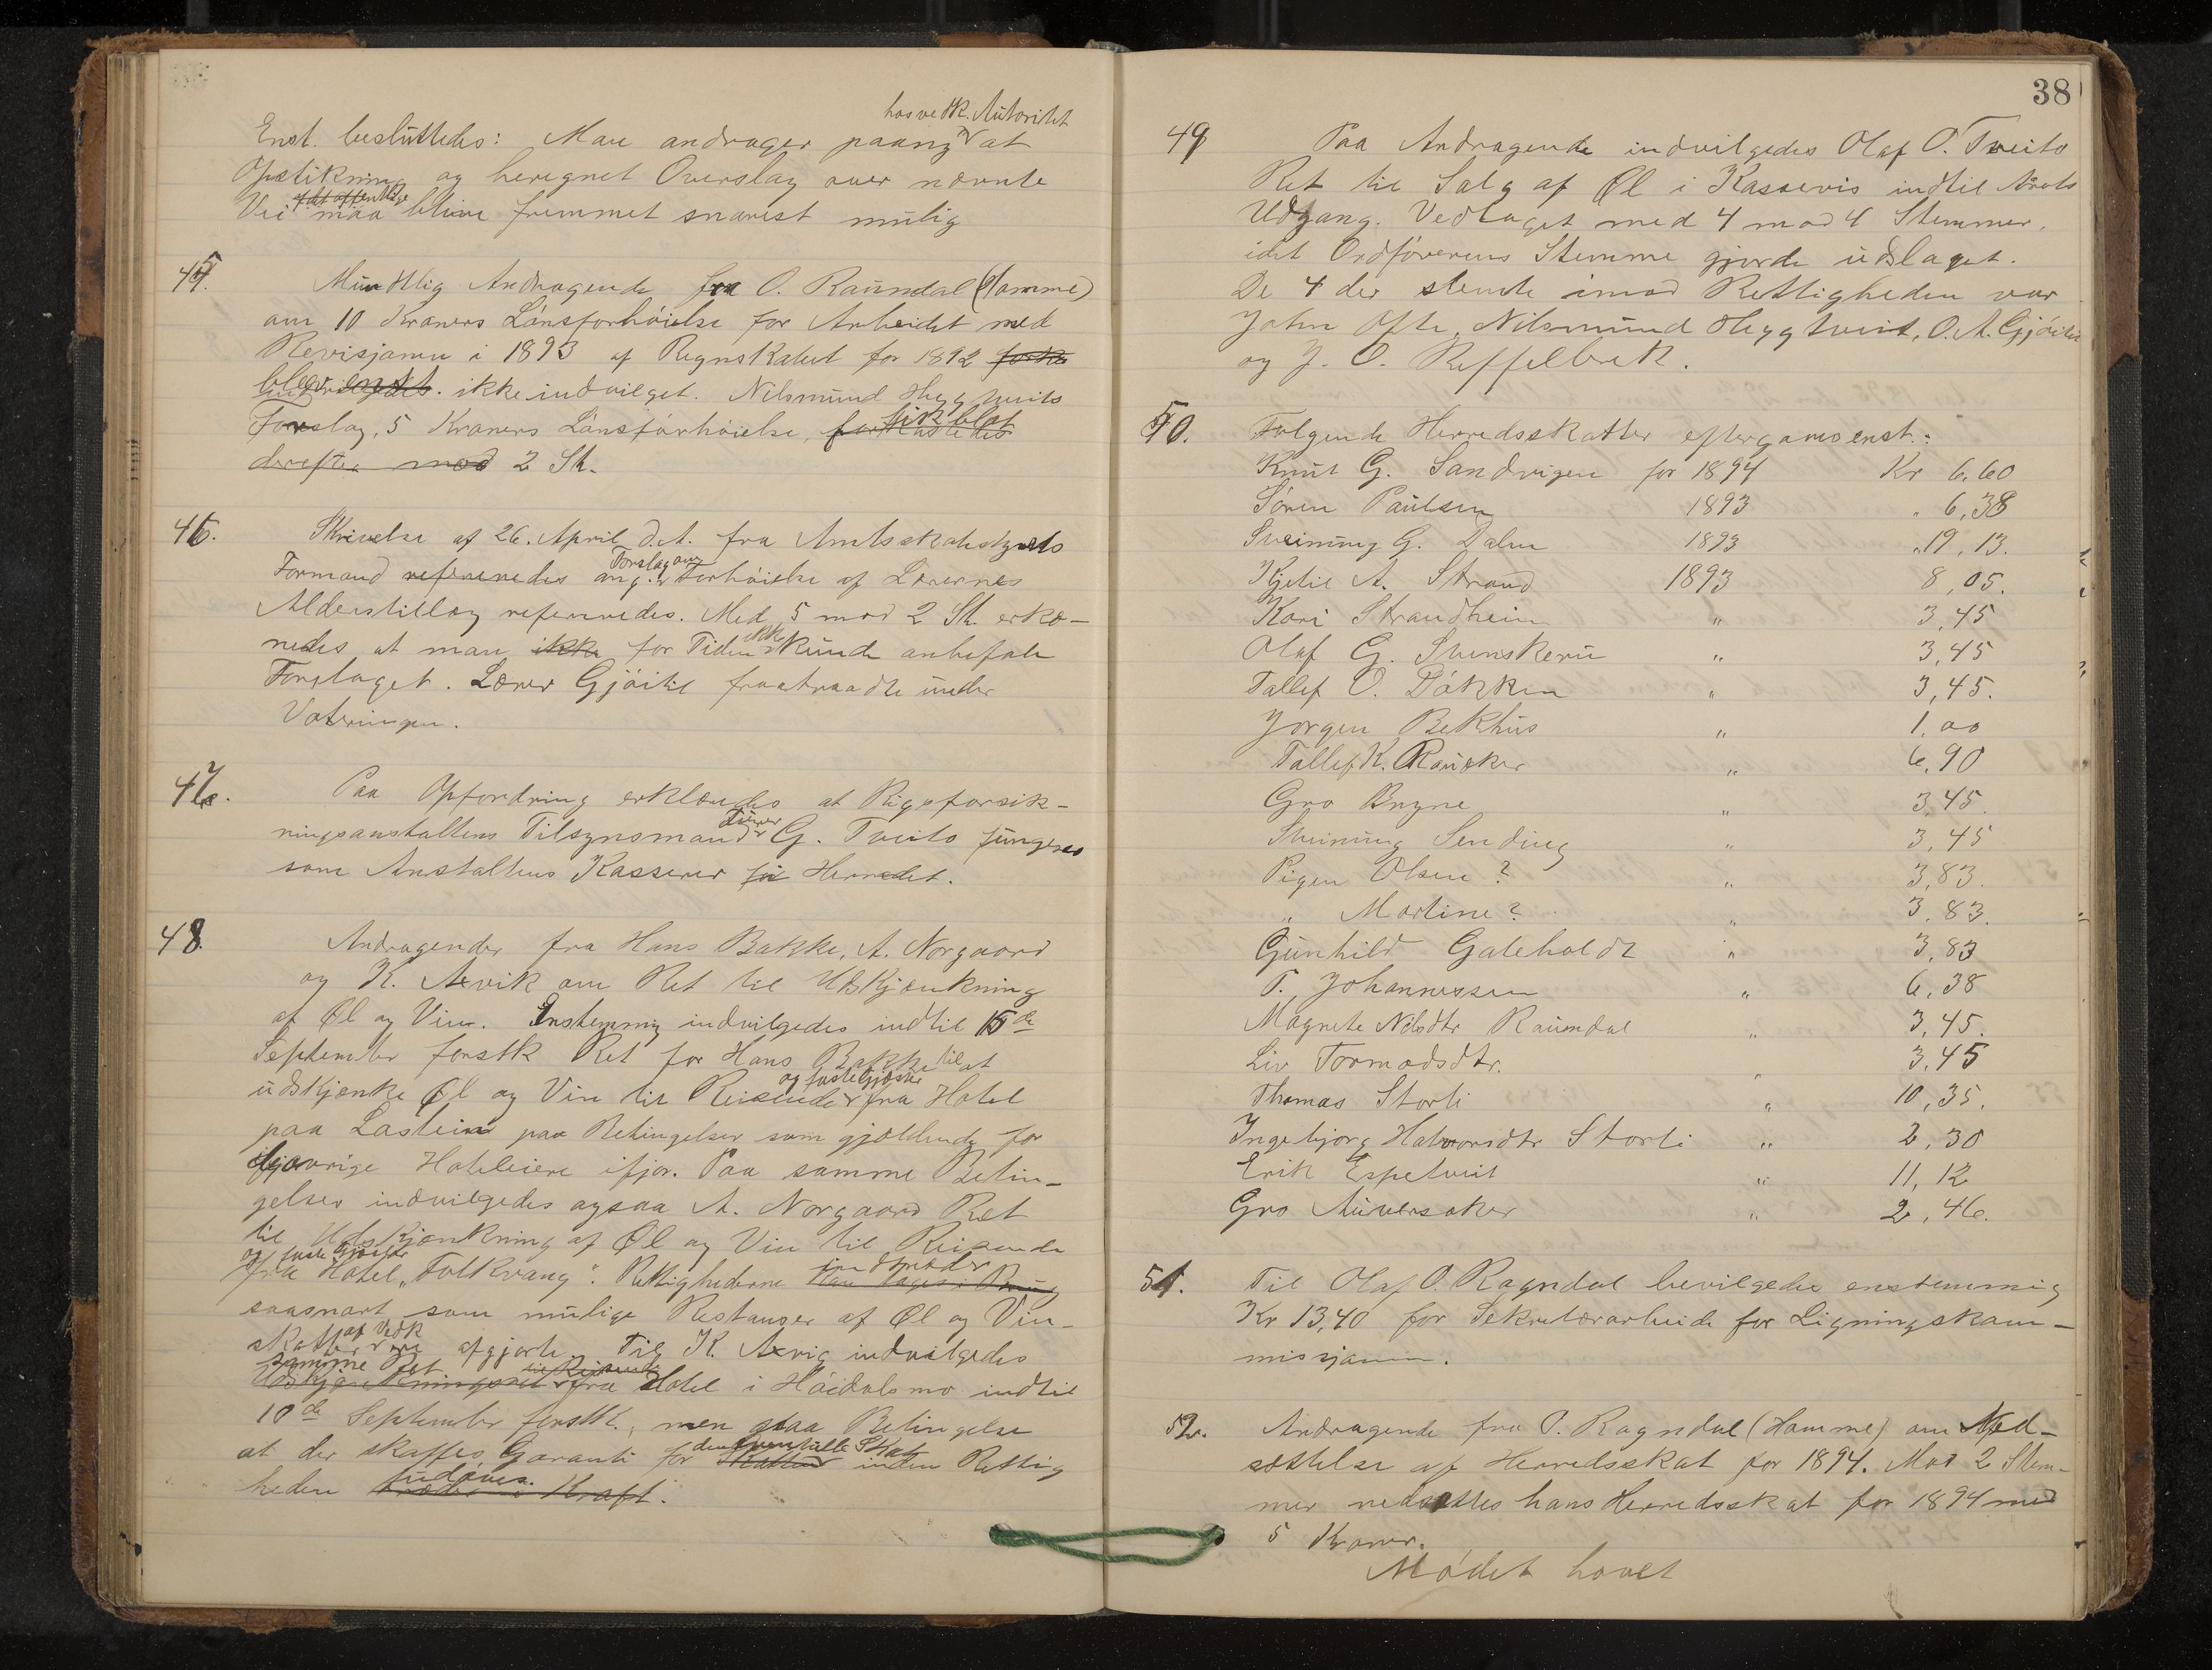 hos vedk. Autoritet
Enst. besluttedes: Man andrager paany at
Opstikning og beregnet Overslag over nævnte
Vei maa blive fremmet snarest mulig
45. Mundtlig Andragende fra O. Raundal (Hamme)
om 10 Kroners Lönsforhöielse for Arbeidet med
Revisjonen i 1893 af Regnskabet for 1892
blev enst. ikke indvilget. Nilsmund Heggtveits
Forslag, 5 Kroners Lönsforhöielse, fik blot
2 St.
46. Skrivelse af 26. April d.A. fra Amtsskolestyrets
Formand ang. Forslag om Forhöielse af Lærernes
Alderstillæg refereredes. Med 5 mod 2 St. erkjo-
nedes at man for Tiden ikke kunde anbefale
Forslaget. Lærer Gjöitil fratraadte under
Voteringen.
47. Paa Opfordring erklæredes at Rigsforsik-
ringsanstaltens Tilsynsmand G. Tveito fungerer
som Anstaltens Kasserer for Herredet.
48. Andragender fra Hans Bakke, A. Norgaard
og K. Axvik om Ret til Udskjænkning
af Øl og Vin. Enstemmig indvilgedes indtil 15de
September førstk Ret for Hans Bakke til at
udskjænke Øl og Vin til Reisende og faste Gjæster fra Hotel
paa Lastein paa Betingelser som gjældende for
øvrige Hoteleiere ifjor. Paa samme Betin-
gelser indvilgedes ogsaa A. Norgaard Ret
til Udskjænkning af Øl og Vin til Reisende
og faste Gjæster
fra Hotel "Folkvang". Rettighederne indtræder
saasnart som mulige Restanser af Øl og Vin-
skatter af Vedk ere afgjorte. Til K. Axvig indvilgedes
samme Ret til Reisende fra Hotel i Höidalsmo indtil
10de September førstk., men paa Betingelse
at der skaffes Garanti for den eventuelle Skat inden Rettig
heden udöves.
38
49 Paa Andragende indvilgedes Olaf O. Tveito
Ret til Salg af Øl i Kassevis indtil Årets
Udgang. Vedtaget med 4 mod 4 Stemmer,
idet Ordförerens Stemme gjorde udslaget.
De 4 der stemte imod Rettigheden var
John Ofte, Nilsmund Heggtveit, O. A. Gjöitil
og J. O. Reffelbek.
50. Følgende Herredsskatter eftergaves enst.:
Knut G. Sandvigen for 1894 Kr 6,60
Sören Paulsen 1893 " 6,38
Sveinung G. Dalen 1893 " 19,13.
Kjetil A. Strand 1893 8,05.
Kari Strandheim " 3,45
Olaf G. Svenskerii " 3,45
Tallef O. Bökken " 3,45.
Jorgen Bekhus " 1,00
Tallef K. Rausker " 6,90
Gro Bryne " 3,45.
Sveinung Sending " 3,45
Pigen Olsen? " 3,83.
" Martine? " 3,83.
Gunhild Galeholdt " 3,83
T. Johannessen " 6,38
Magnete Nilsdtr Raundal " 3,45.
Liv Tormodsdtr. " 3,45
Thomas Storli " 10,35.
Ingebjorg Halvorsdtr Storli " 2,30
Erik Espetveit " 11,12
Gro Auversaker " 2,46.
51. Til Olaf O. Ragndal bevilgedes enstemmig
Kr 13,40 for Sekretærarbeide for Ligningskom-
missjonen.
52. Andragende fra O. Ragndal (Hamme) om Ned-
sættelse af Herredsskat for 1894. Mod 2 Stem-
mer nedsattes hans Herredsskat for 1894 med
5 Kroner.
Mödet hævet